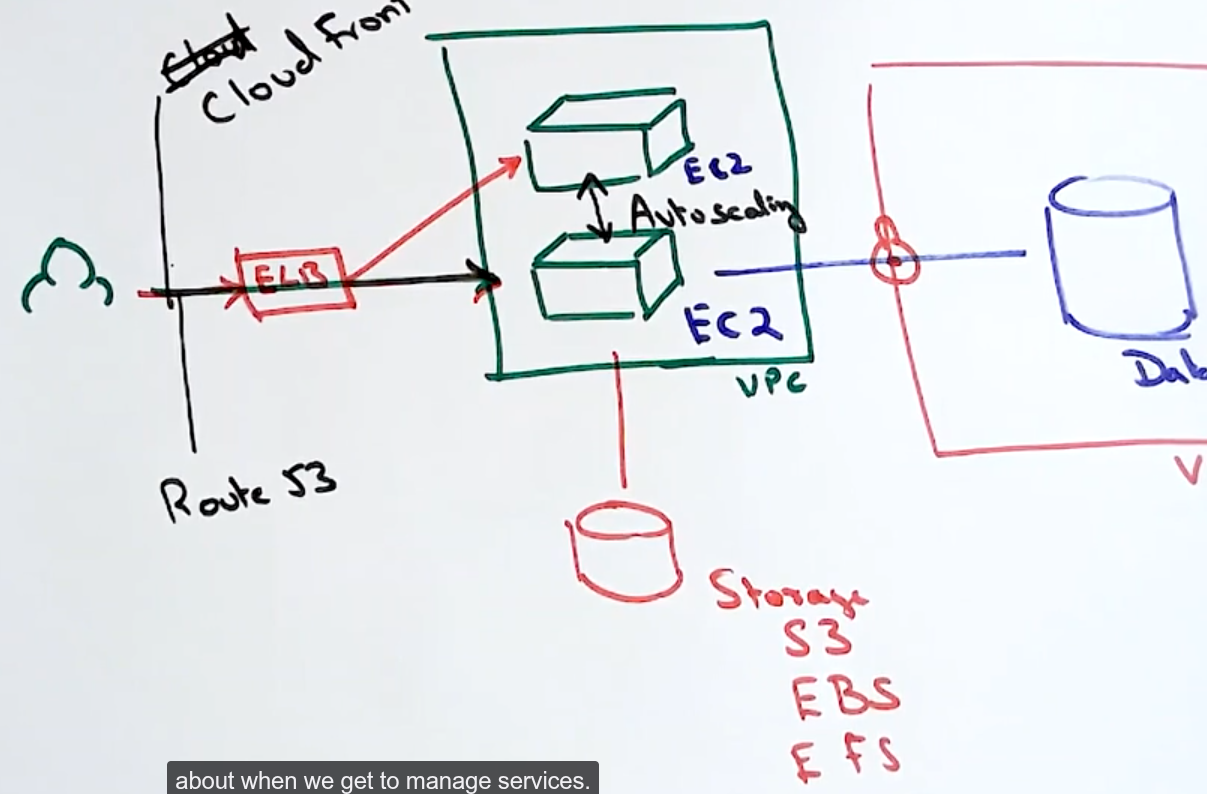 Cloud
Cloud Front
EC2
Autoscaling
ELB
EC2
VPC
Dat
V
Route 53
Storage
S3
EBS
EFS
about when we get to manage services.